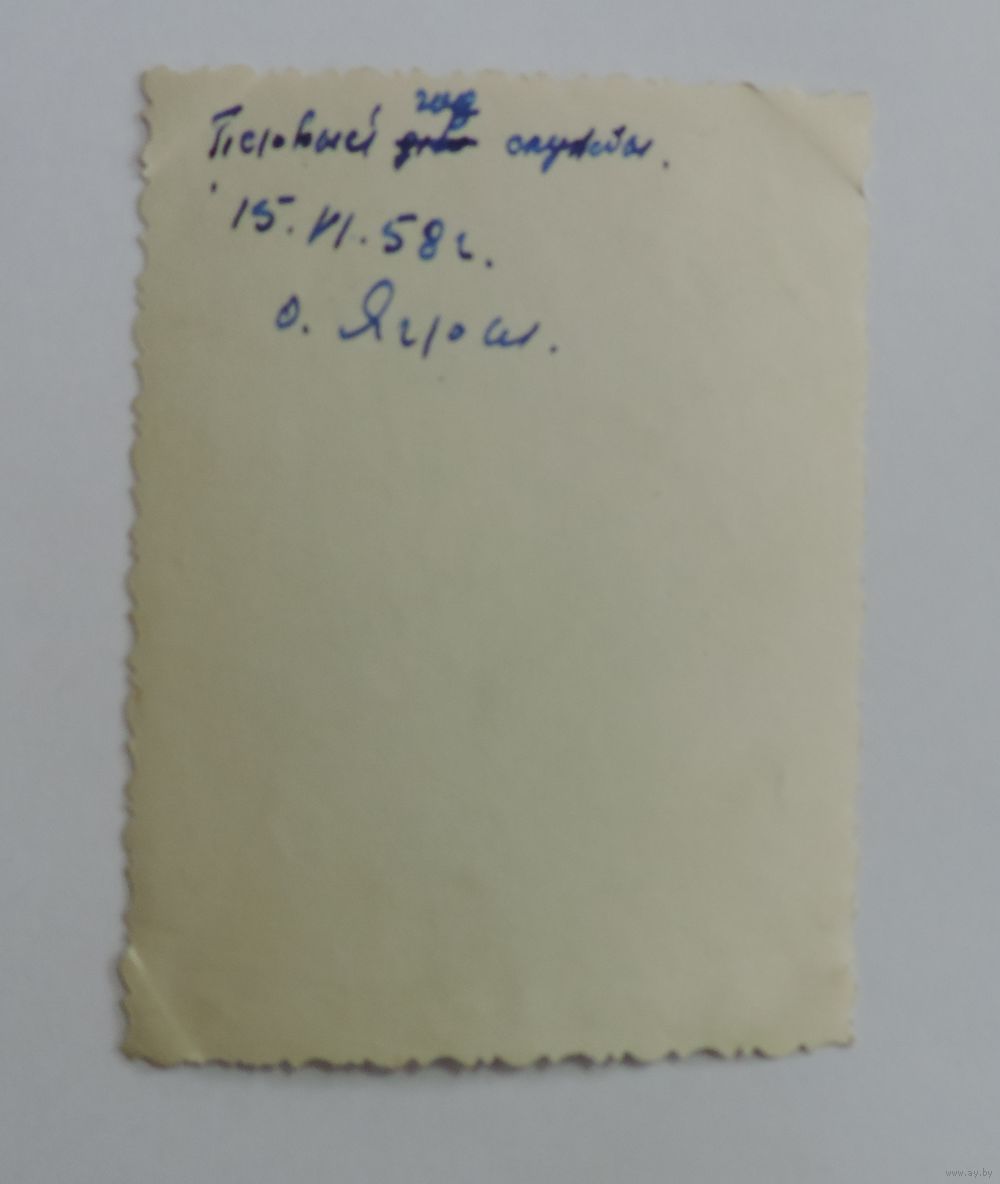 Первый год службы.
15.VI.58г.
о. Ягры.
www.ay.by